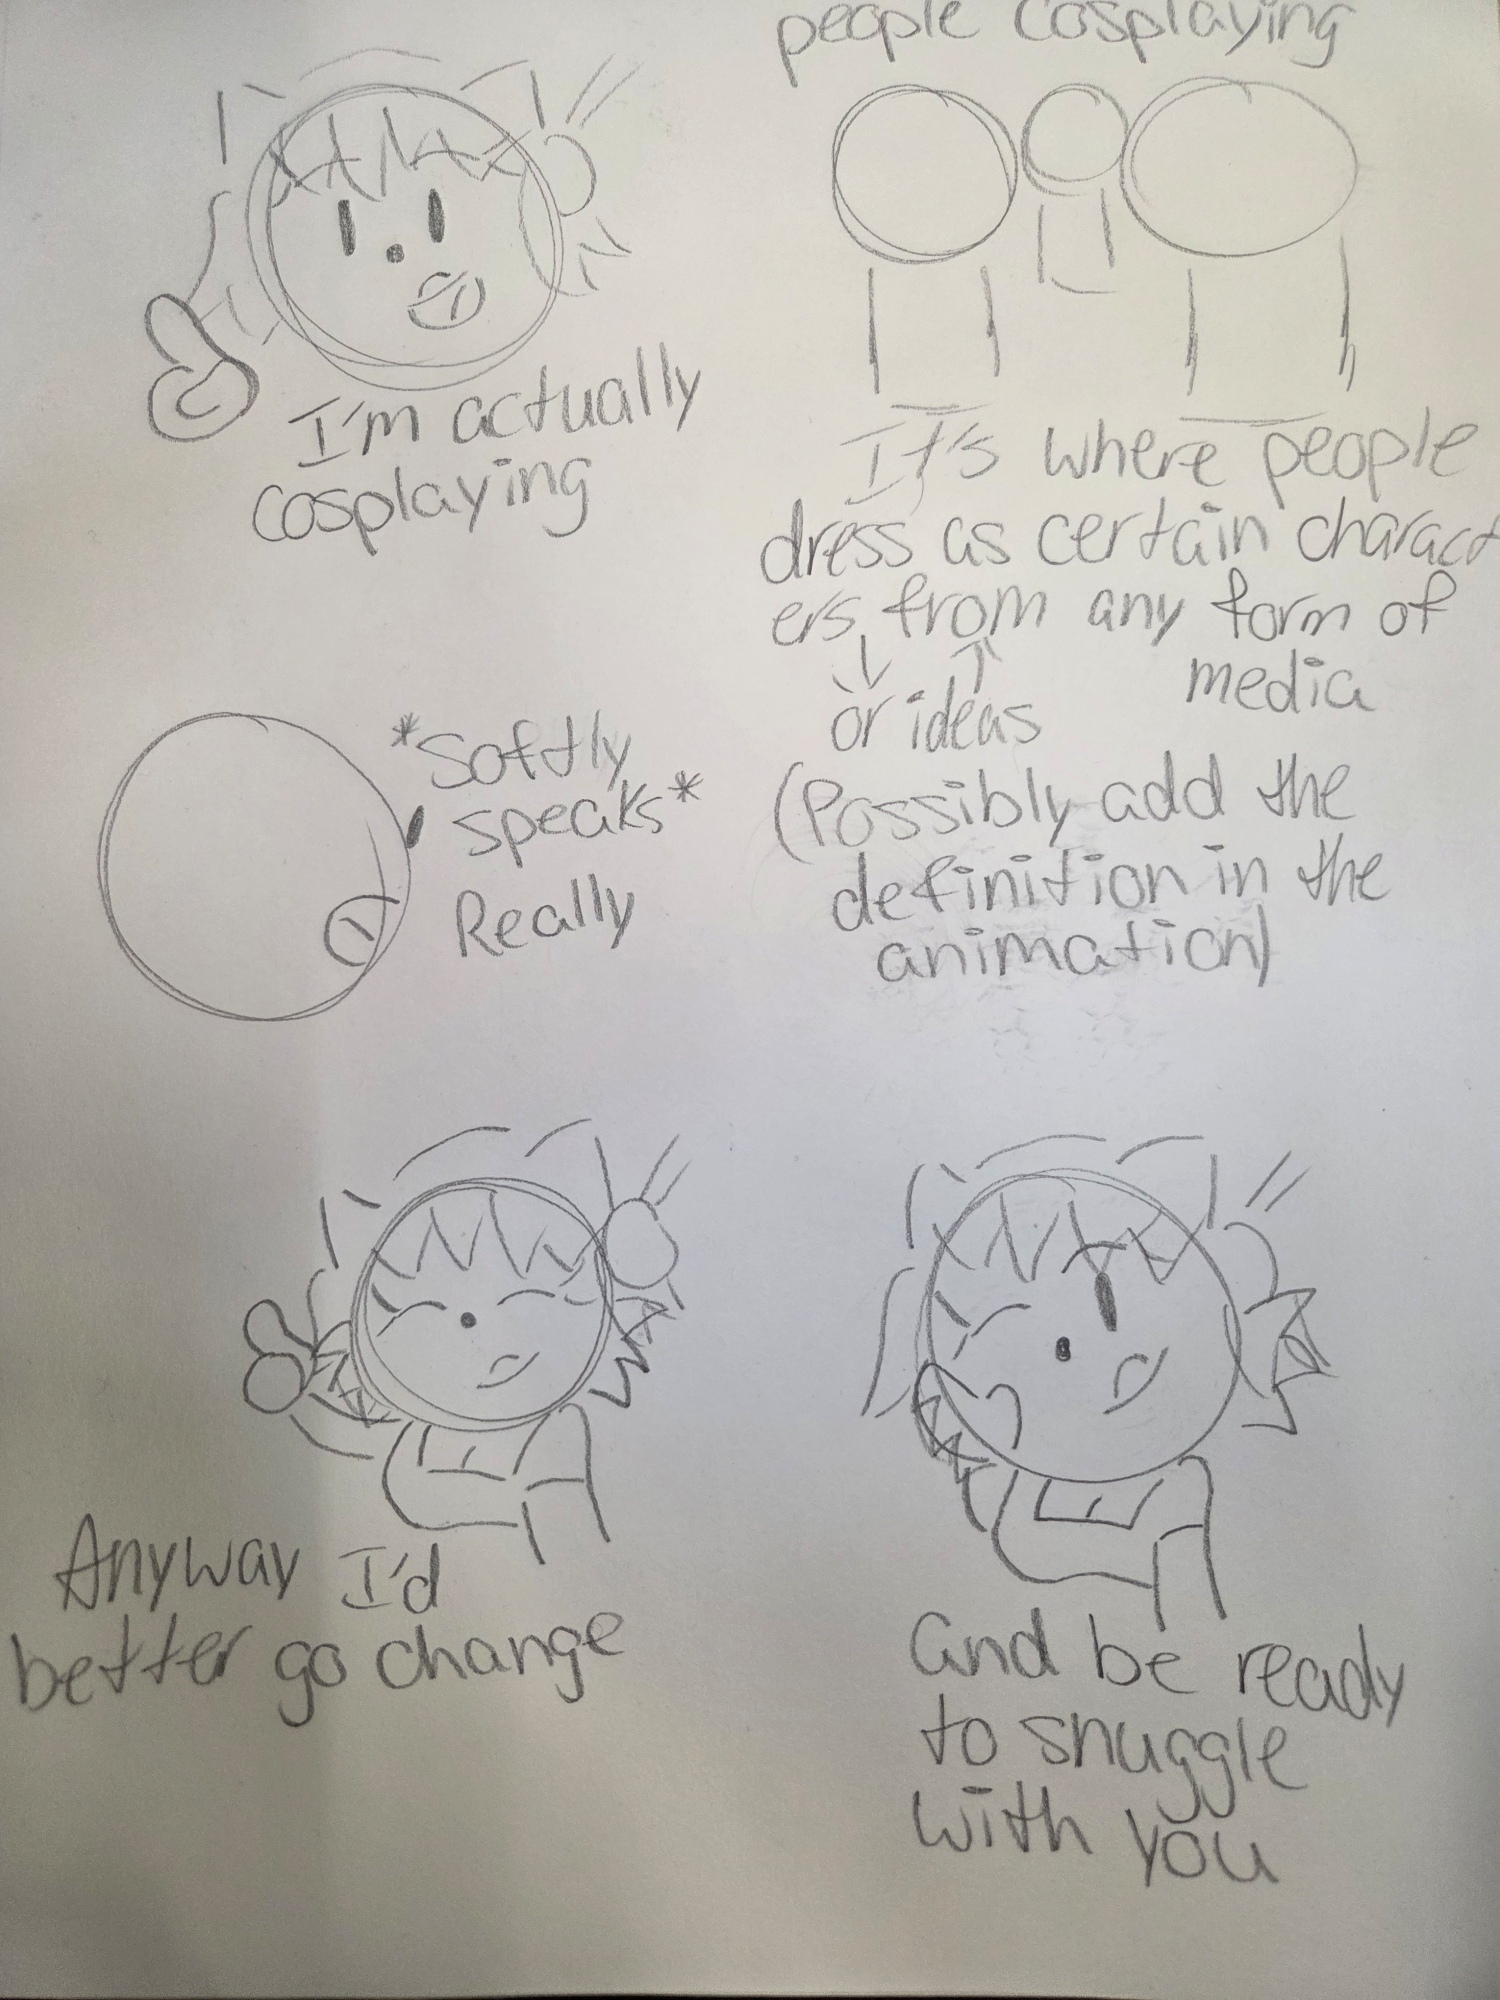 people cosplaying
I'm actually
cosplaying
It's where people
dress as certain charact
ers from any form of
media
or ideas
(Possibly add the
definition in the
animation)
*Softly
speaks*
Really
Anyway I'd
better go change
and be ready
to snuggle
with you